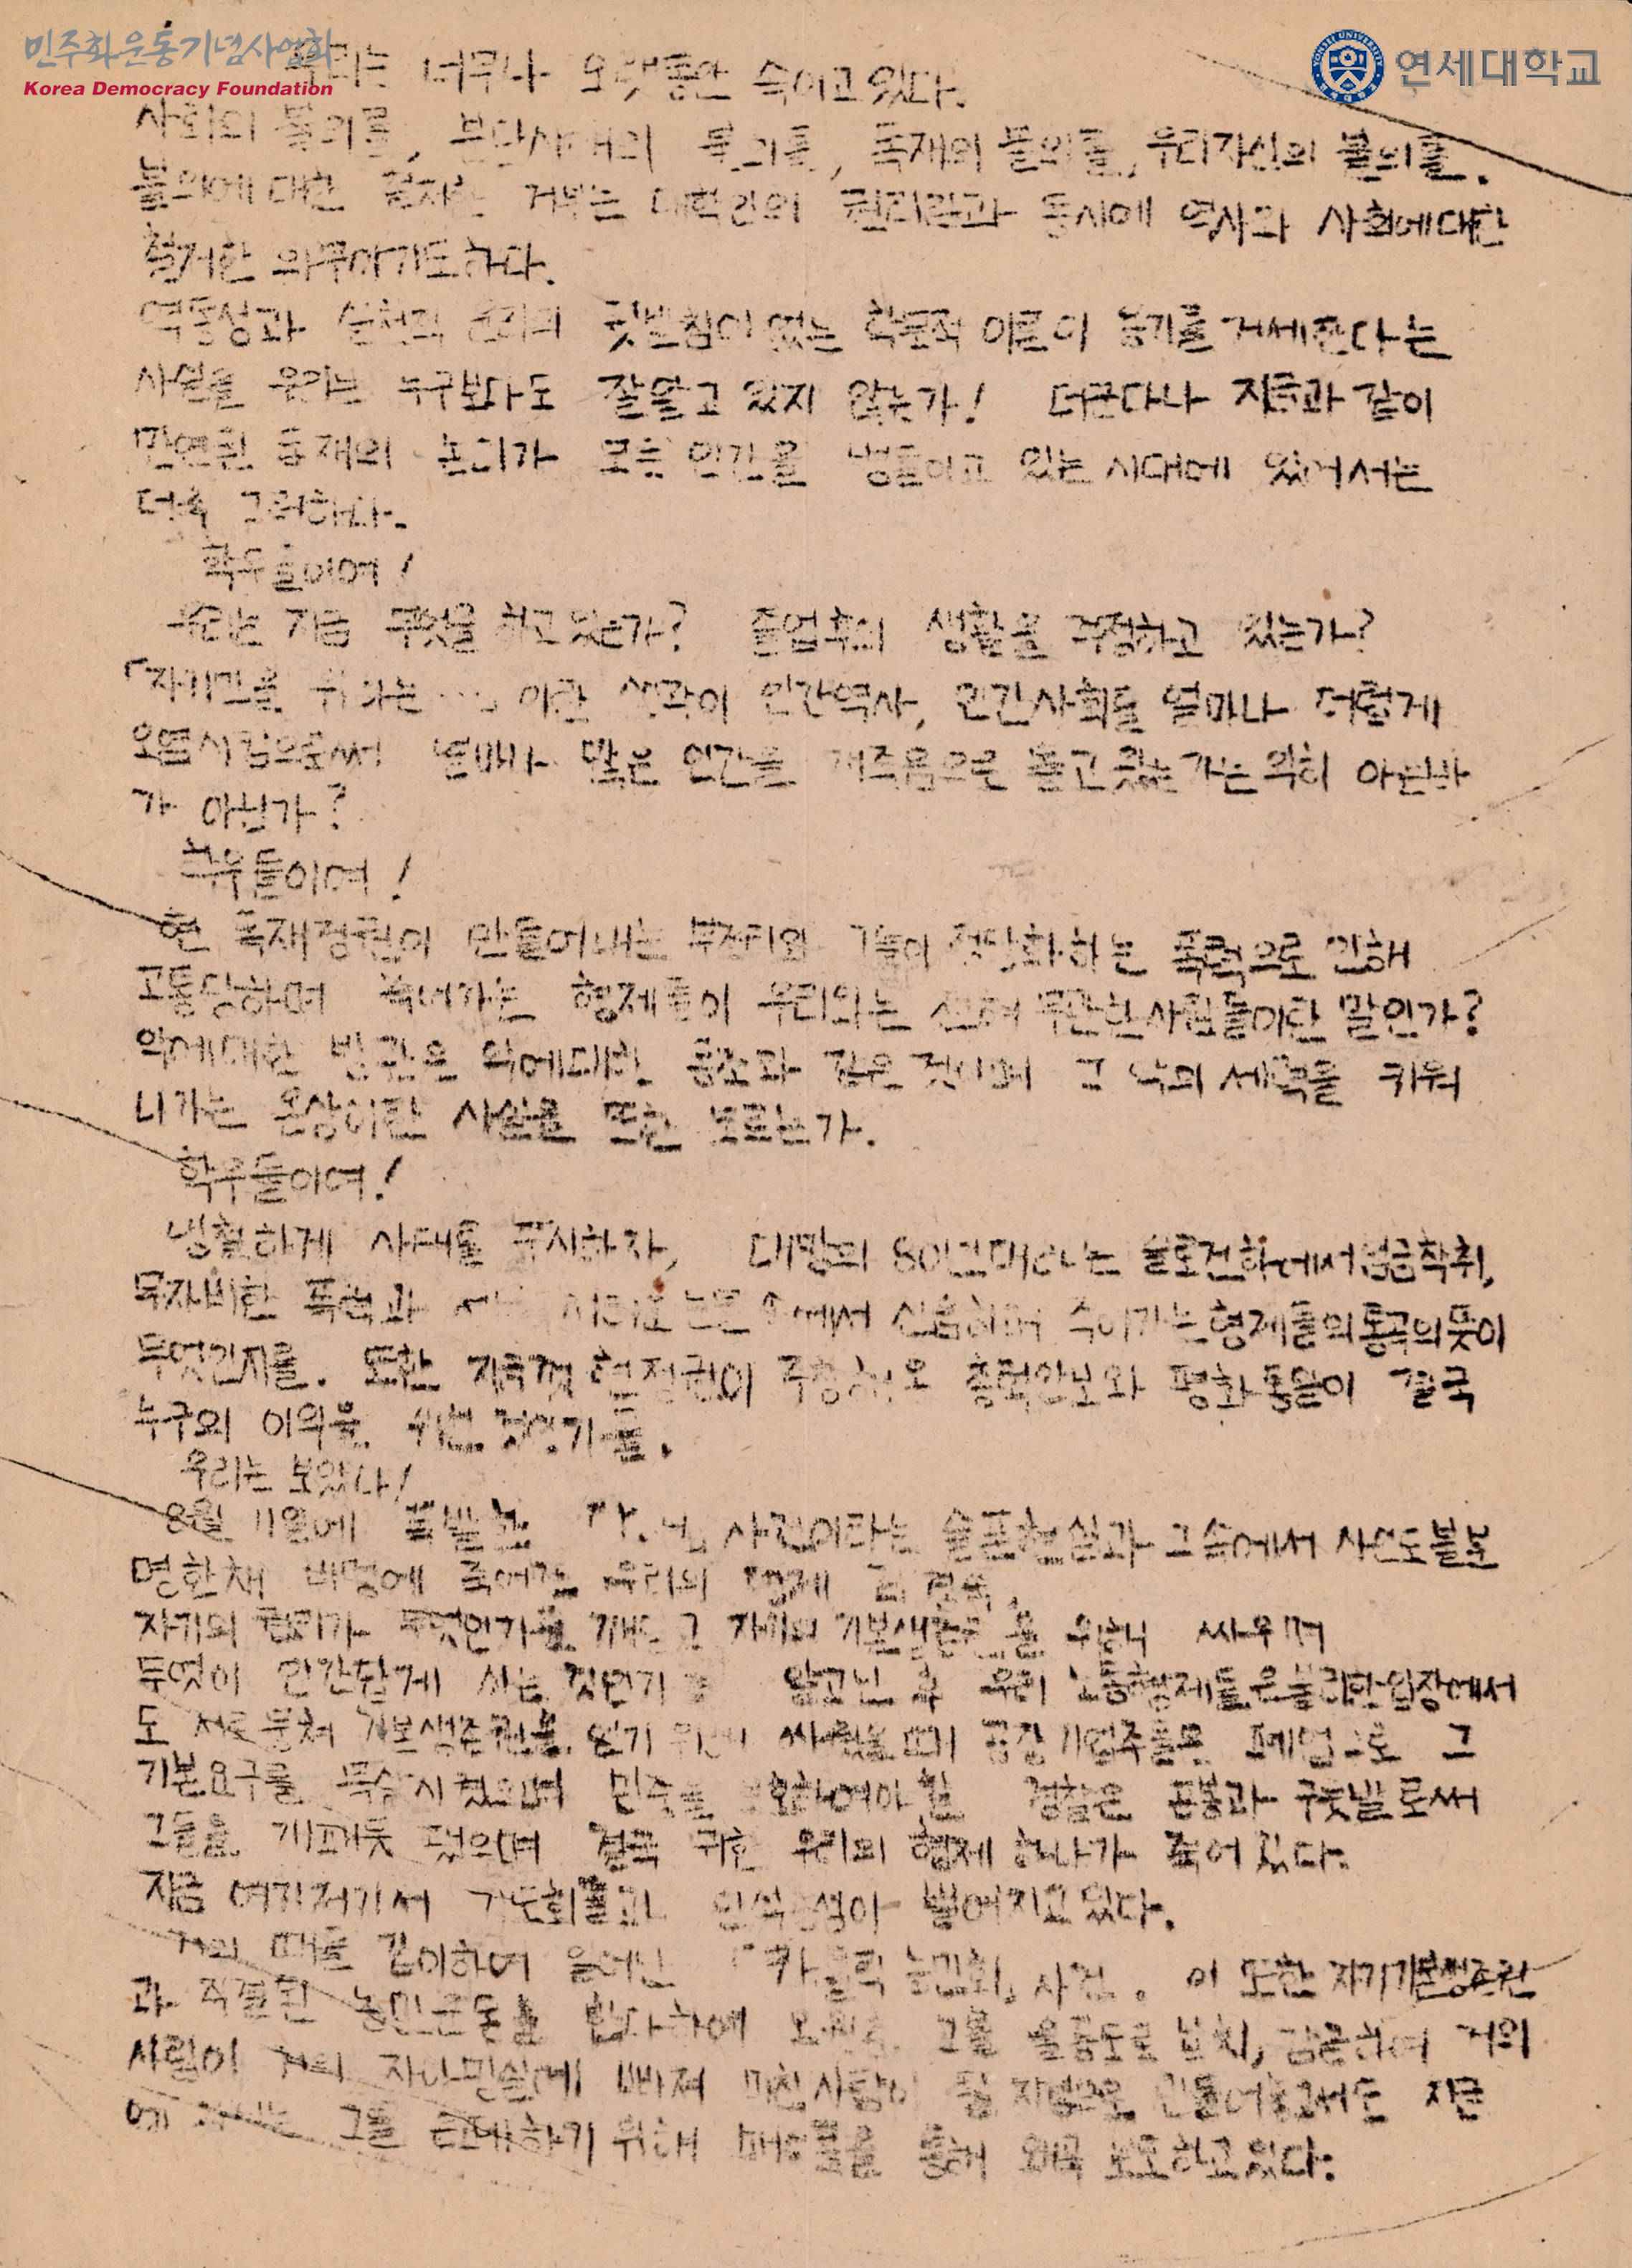 민주화운동기념사업회
Korea Democracy Foundation
연세대학교
우리는 너무나 오랫동안 속이고 있다.
사회의 불의를, 분단사태의 불의를, 독재의 불의를, 우리자신의 불의를.
불의에 대한 거부는 대학인의 권리인과 동시에 역사와 사회에대한
의무이기도하다.
역동성과 실천적 의 뒷받침이 없는 학문적 이론이 용기를 거세한다는
사실을 우리는 누구보다도 잘 알고 있지 않는가! 더군다나 지금과 같이
만연된 독재의 논리가 모든 인간을 병들이고 있는 시대에 있어서는
더욱 그러하다.
학우들이여!
우리는 지금 무엇을 하고 있는가? 졸업후의 생활을 걱정하고 있는가?
「자기만을 위하는 이란 생각이 인간역사, 인간사회를 얼마나 더럽게
오염시킴으로써 얼마나 많은 인간을 개죽음으로 몰고 왔는가는 익히 아는바
가 아닌가?
학우들이여!
현 독재정권이 만들어내는 부조리와 그들이 정당화하는 폭력으로 인해
고통당하며 죽어가는 형제들이 우리와는 전혀 무관한 사람들이란 말인가?
악에대한 방관은 악에대한 동조와 같은 것이며 그 악의 세력을 키워
나가는 온상이란 사실을 또한 모르는가.
학우들이여!
냉철하게 사태를 주시하자, 대망의 80년대라는 슬로건하에서 임금착취,
무자비한 폭력과 속에서 신음하며 죽어가는 형제들의 통곡의 뜻이
무엇인지를. 또한 지금껏 현정권이 주장해온 총력안보와 평화통일이 결국
누구의 이익을 위한 것인가를.
우리는 보았다!
8월 11일에 폭발한 「Y.H」 사건이라는 슬픈현실과 그속에서 사인도불분
명한채 비명에 죽어간 우리의 형제 김경숙.
자기의 권리가 무엇인가를 깨닫고 자기의 기본생존권을 위해 싸우며
무엇이 인간답게 사는 것인가를 알고난 후 우리 노동형제들은 불리한 입장에서
도 서로 뭉쳐 기본생존권을 얻기 위해 싸웠을 때 공장기업주들은 폐업으로 그
기본요구를 묵살시켰으며 민중을 보호하여야 할 경찰은 곤봉과 구둣발로써
그들을 개패듯 팼으며 결국 귀한 우리의 형제 하나가 죽어 갔다.
지금 여기저기서 기도회들과 인식 벌어지고 있다.
거의 때를 같이하여 일어난 「카톨릭 농민회」 사건. 이 또한 자기기본생존권
과 직결된 농민운동을 탄압하에 오원춘 그를 울릉도로 납치, 감금하여 거의
사람이 거의 자아망실에 빠져 미친사람이 될 지경으로 만들어놓고서도 지금
에 와서는 그를 은폐하기 위해 매스콤을 통해 왜곡 보도하고 있다.